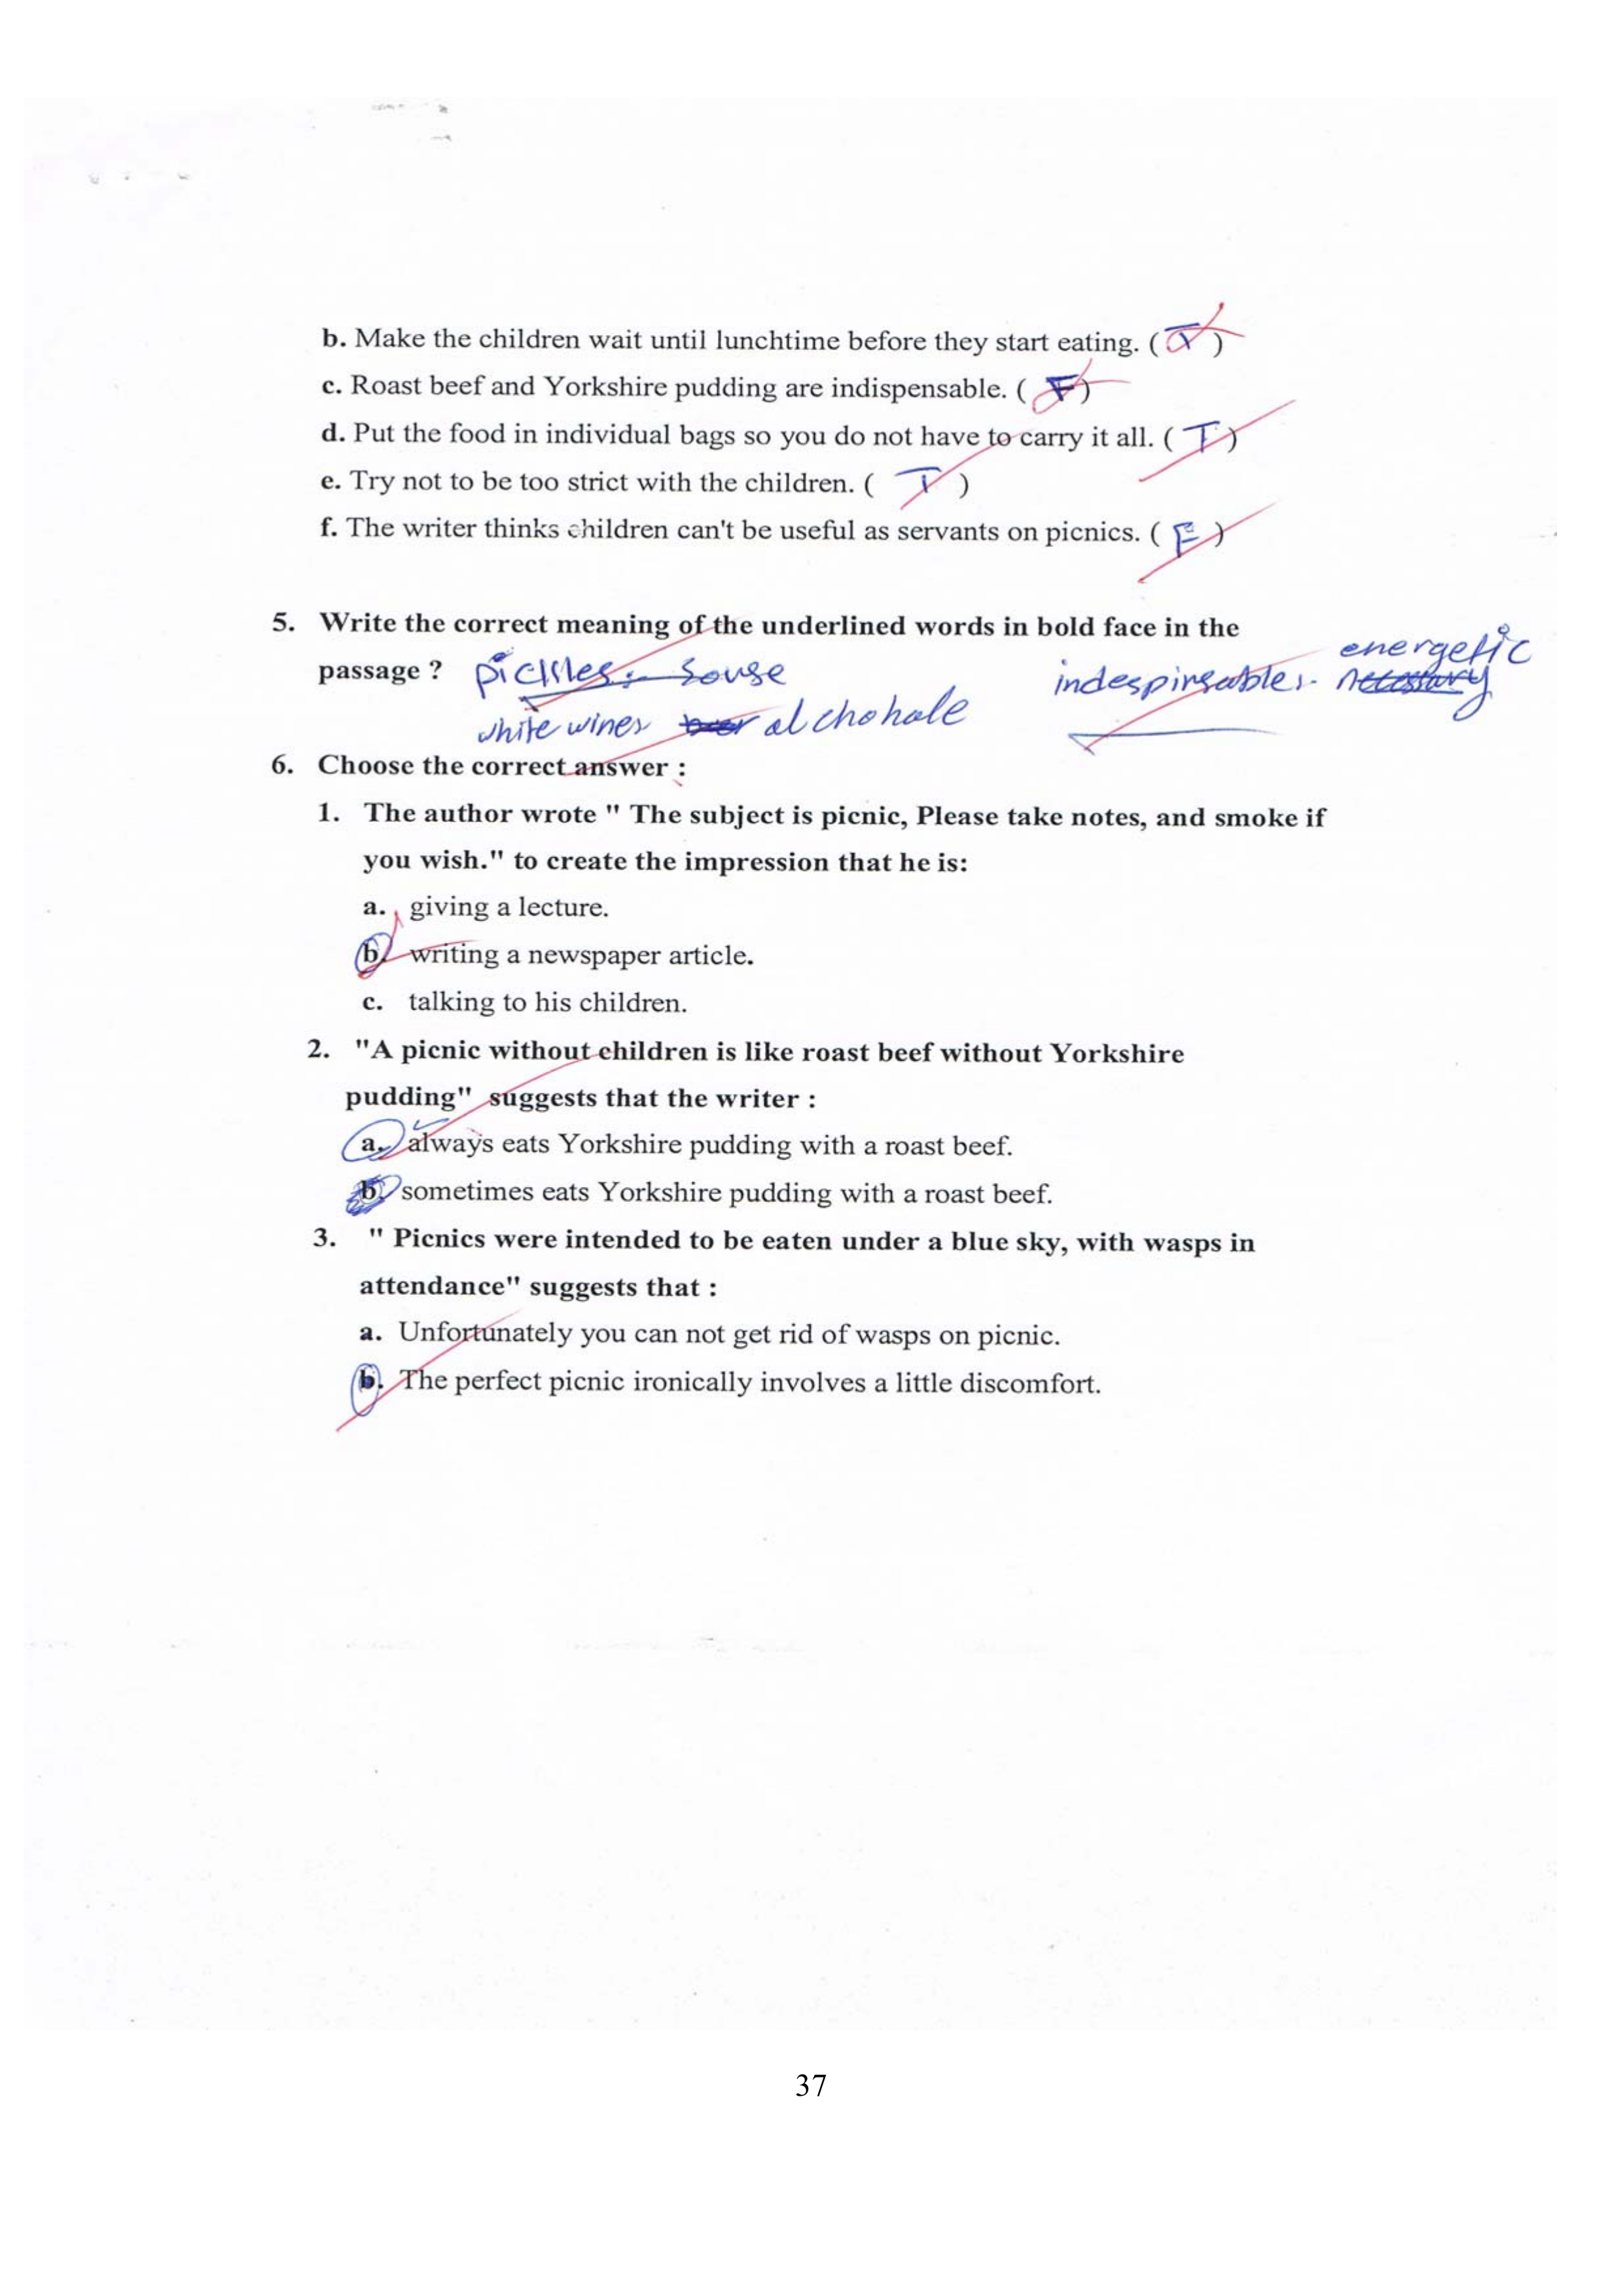 b. Make the children wait until lunchtime before they start eating. ( T )
c. Roast beef and Yorkshire pudding are indispensable. ( F )
d. Put the food in individual bags so you do not have to carry it all. ( T )
e. Try not to be too strict with the children. ( T )
f. The writer thinks children can't be useful as servants on picnics. ( F )
5. Write the correct meaning of the underlined words in bold face in the
energetic
passage ? pickles: souse indespinsables. necessary
white wines alchohale
6. Choose the correct answer :
1. The author wrote " The subject is picnic, Please take notes, and smoke if
you wish." to create the impression that he is:
a. giving a lecture.
b. writing a newspaper article.
c. talking to his children.
2. "A picnic without children is like roast beef without Yorkshire
pudding" suggests that the writer :
a. always eats Yorkshire pudding with a roast beef.
b. sometimes eats Yorkshire pudding with a roast beef.
3. " Picnics were intended to be eaten under a blue sky, with wasps in
attendance" suggests that :
a. Unfortunately you can not get rid of wasps on picnic.
b. The perfect picnic ironically involves a little discomfort.
37